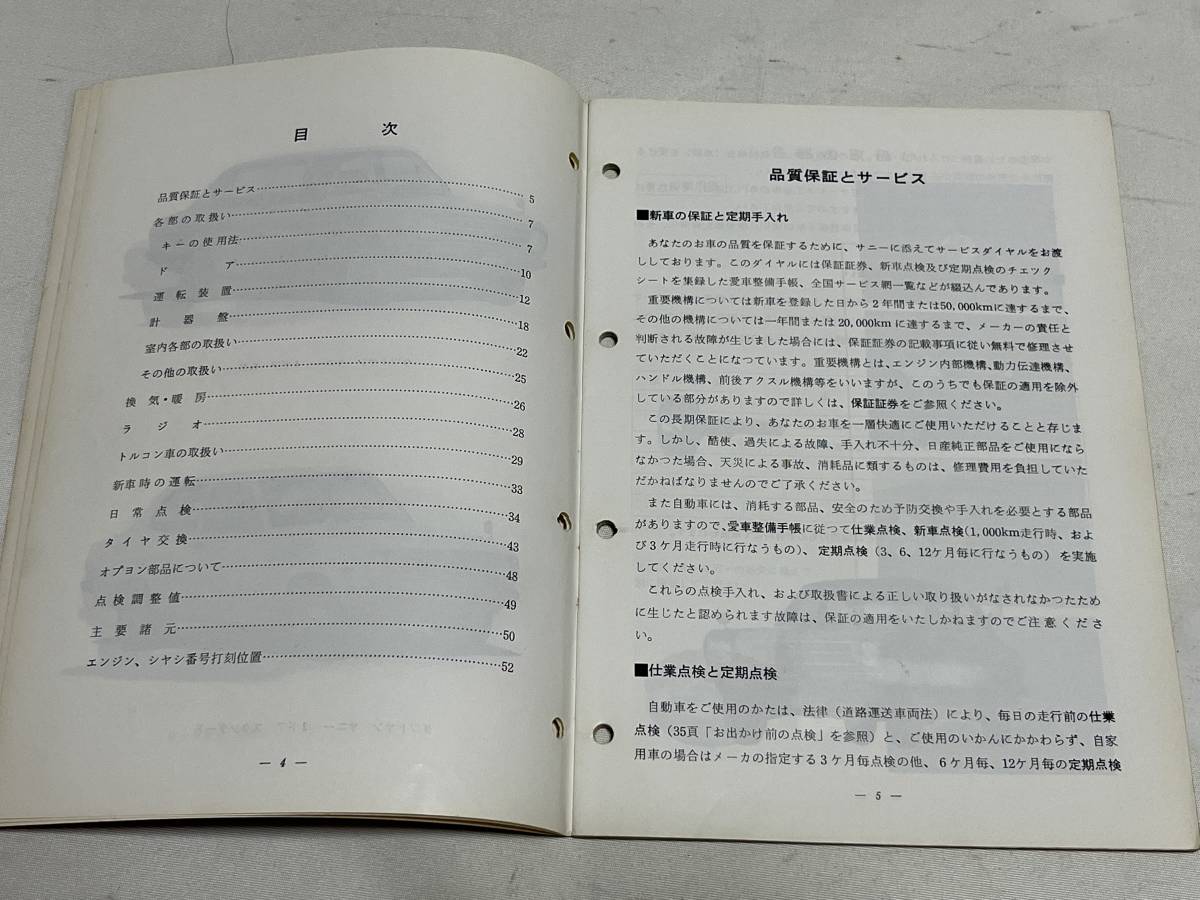 目 次
品質保証とサービス 5
各部の取扱い 7
キーの使用法 7
ド ア 10
運転装置 12
計器盤 18
室内各部の取扱い 22
その他の取扱い 25
換気・暖房 26
ラジオ 28
トルコン車の取扱い 29
新車時の運転 33
日常点検 34
タイヤ交換 43
オプション部品について 48
点検調整値 49
主要諸元 50
エンジン、シヤシ番号打刻位置 52
— 4 —
品質保証とサービス
■新車の保証と定期手入れ
あなたのお車の品質を保証するために、サニーに添えてサービスダイヤルをお渡
ししております。このダイヤルには保証証券、新車点検及び定期点検のチェック
シートを集録した愛車整備手帳、全国サービス網一覧などが綴込んであります。
重要機構については新車を登録した日から2年間または50,000kmに達するまで、
その他の機構については一年間または20,000kmに達するまで、メーカーの責任と
判断される故障が生じました場合には、保証証券の記載事項に従い無料で修理させ
ていただくことになつています。重要機構とは、エンジン内部機構、動力伝達機構、
ハンドル機構、前後アクスル機構等をいいますが、このうちでも保証の適用を除外
している部分がありますので詳しくは、保証証券をご参照ください。
この長期保証により、あなたのお車を一層快適にご使用いただけることと存じま
す。しかし、酷使、過失による故障、手入れ不十分、日産純正部品をご使用になら
なかつた場合、天災による事故、消耗品に類するものは、修理費用を負担していた
だかねばなりませんのでご了承ください。
また自動車には、消耗する部品、安全のため予防交換や手入れを必要とする部品
がありますので、愛車整備手帳に従つて仕業点検、新車点検(1,000km走行時、およ
び3ケ月走行時に行なうもの)、定期点検(3、6、12ケ月毎に行なうもの)を実施
してください。
これらの点検手入れ、および取扱書による正しい取り扱いがなされなかつたため
に生じたと認められます故障は、保証の適用をいたしかねますのでご注意くださ
い。
■仕業点検と定期点検
自動車をご使用のかたは、法律(道路運送車両法)により、毎日の走行前の仕業
点検(35頁「お出かけ前の点検」を参照)と、ご使用のいかんにかかわらず、自家
用車の場合はメーカの指定する3ケ月毎点検の他、6ケ月毎、12ケ月毎の定期点検
— 5 —